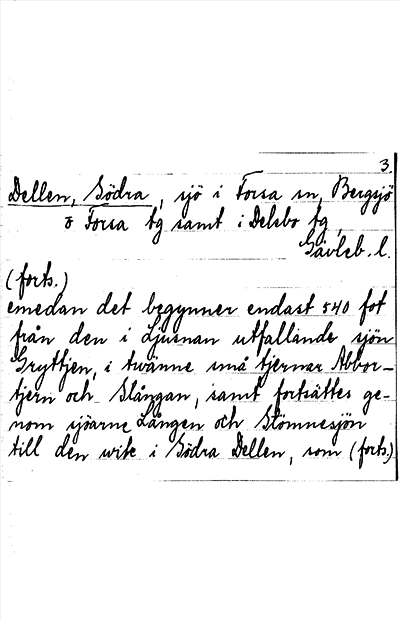 3.
Dellen, Södra, sjö i Forsa sn, Bergsjö
o Forsa tg samt i Delsbo tg,
Gävleb. l.
(forts.)
emedan det begynner endast 540 fot
från den i Ljusnan utfallande sjön
Gryttjen, i twänne små tjernar Abbor-
tjern och Slången, samt fortsättes ge-
nom sjöarne Lången och Stömnesjön
till den wite i Södra Dellen, som (forts.)